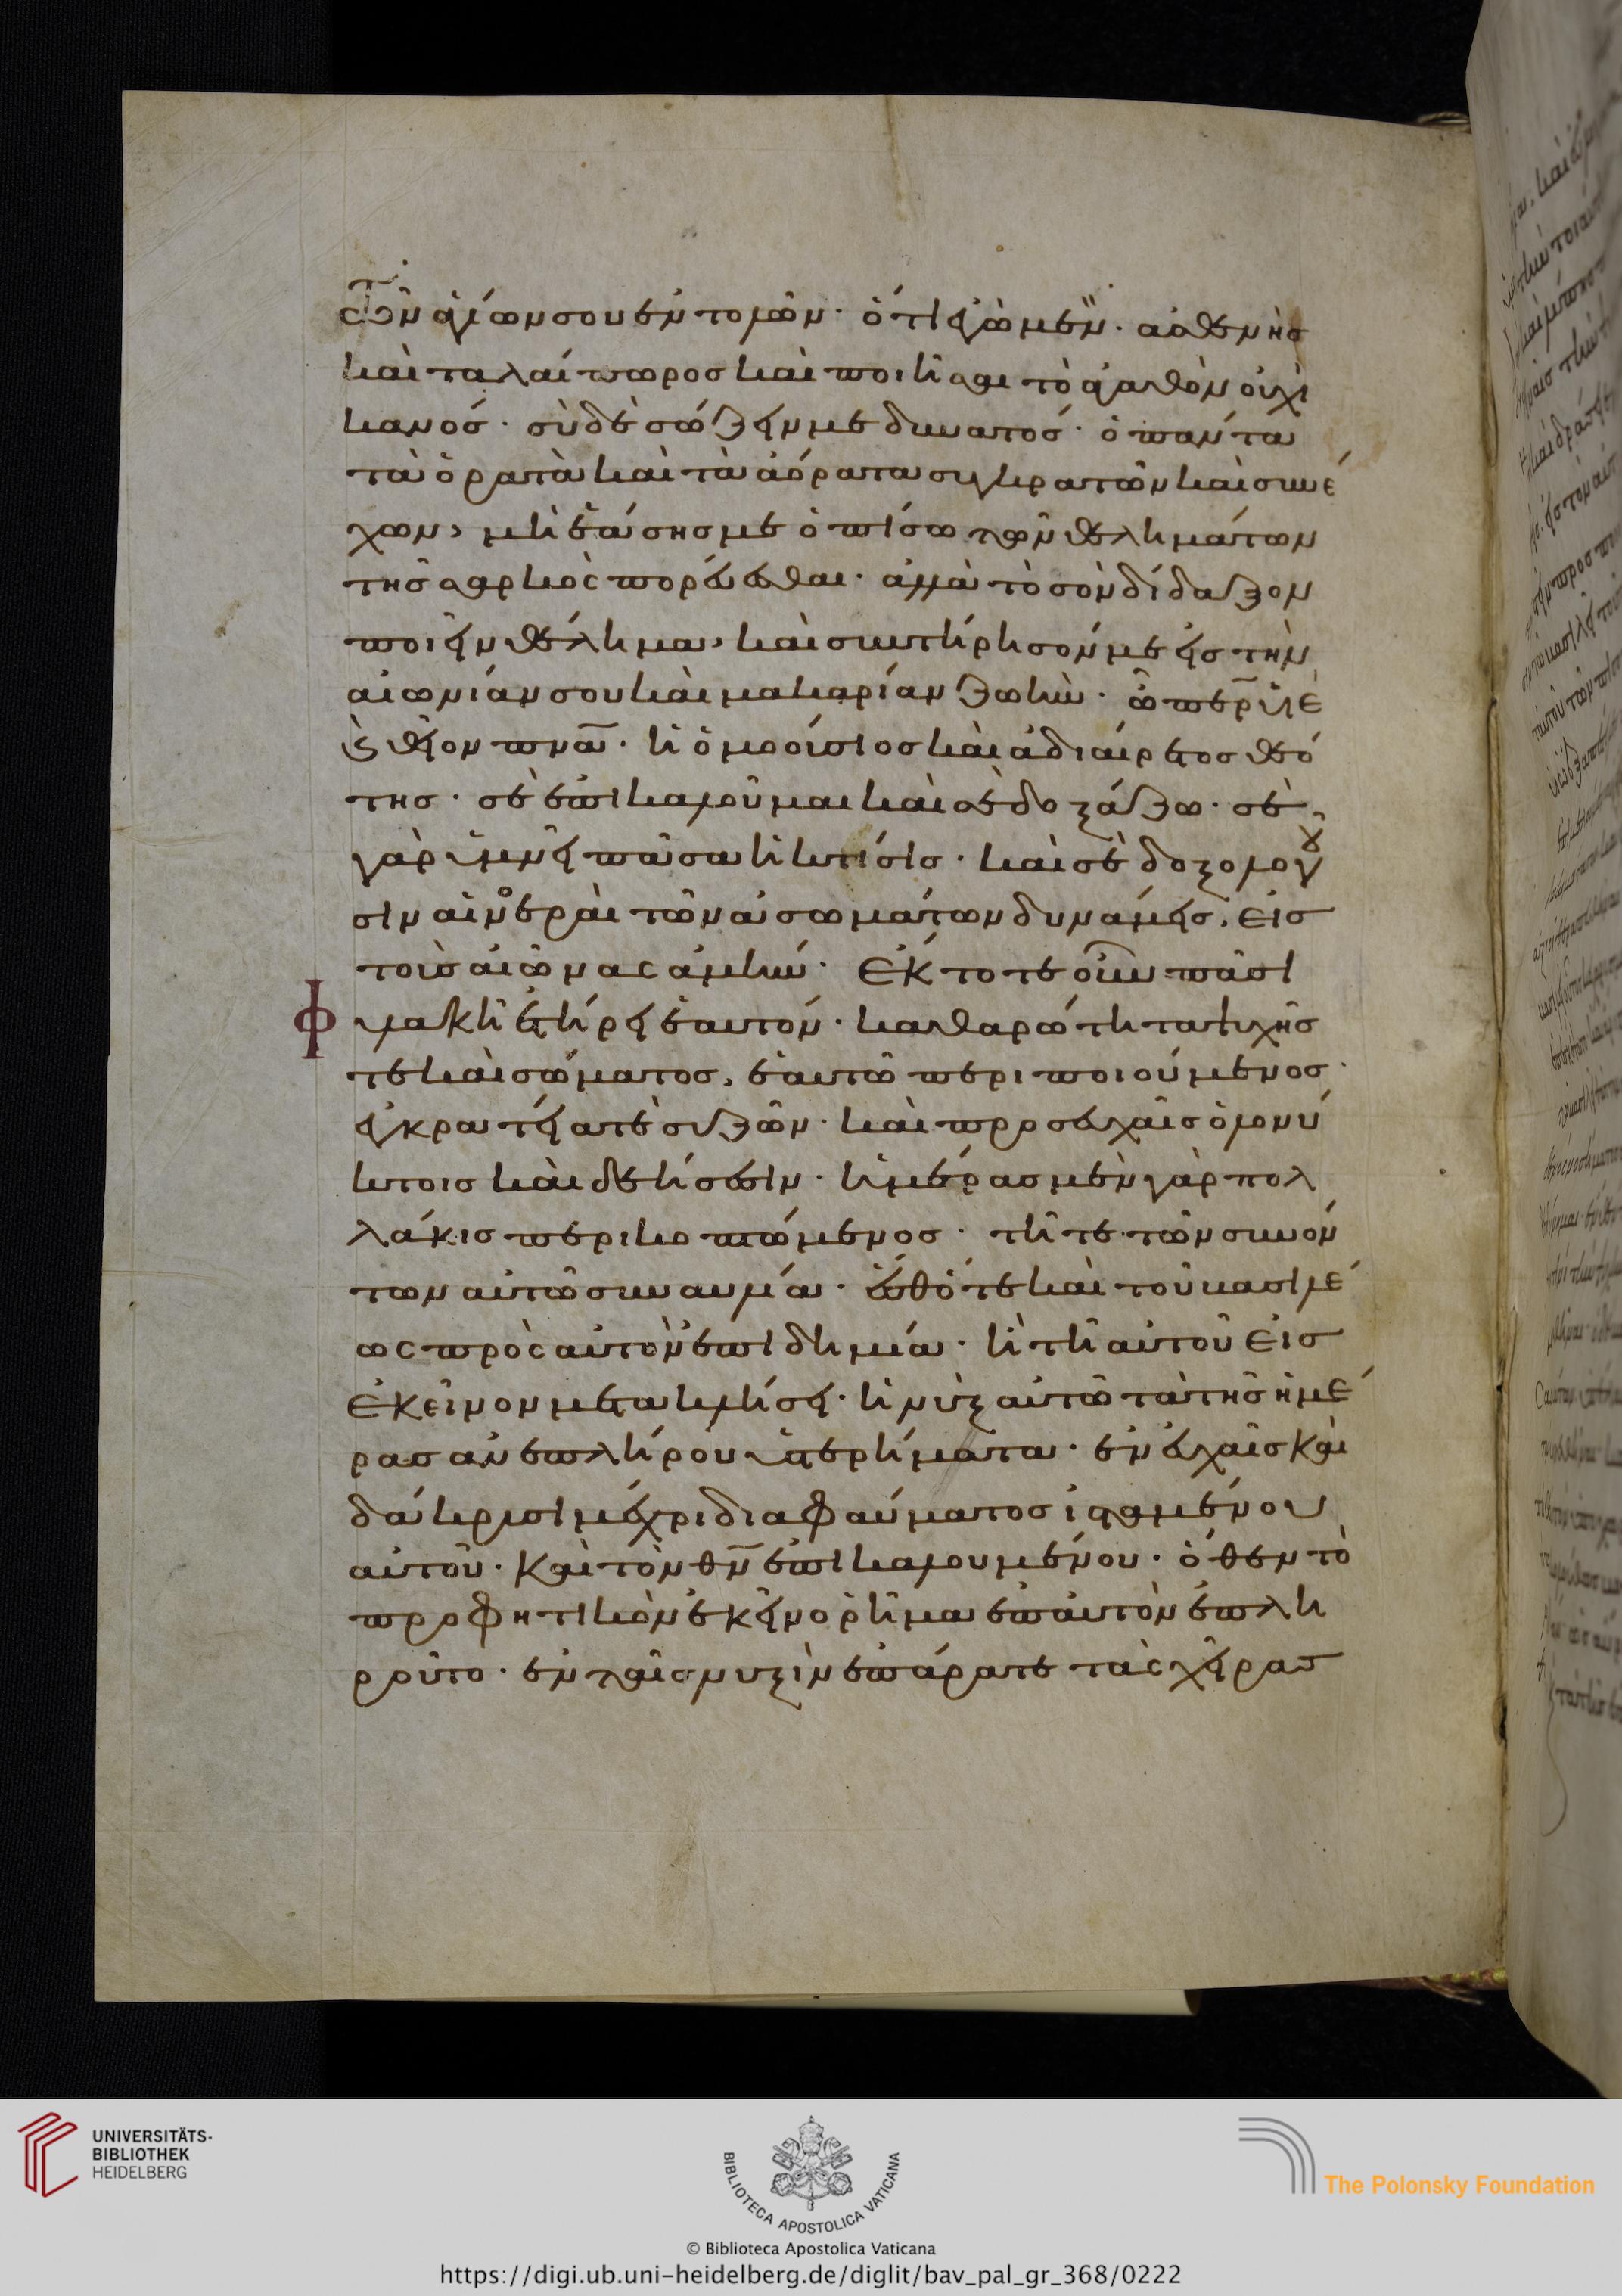 τῶν ἁγίων σου ἐντολῶν· ὅτι ἐγὼ μὲν· ἀσθενὴσ
καὶ ταλαίπωροσ καὶ ποιῆσαι τὸ ἀγαθὸν οὐχ ἱ
κανόσ· σὺ δὲ σώζειν με δυνατόσ· ὁ πάντα
τὰ ὁρατὰ καὶ τὰ ἀόρατα συγκρατῶν καὶ συνέ
χων, μὴ ἐάσησ με ὀπίσω τῶν θελημάτων
τῆσ σαρκὸς πορεύεσθαι· ἀλλὰ τὸ σὸν δίδαξον
ποιεῖν θέλημα, καὶ συντήρησόν με εἰσ τὴν
αἰωνίαν σου καὶ μακαρίαν ζωήν· ὦ περ υἱὲ
καὶ θεῖον πνα· ἡ ὁμοούσιοσ καὶ ἀδιαίρετοσ θεό
τησ· σὲ ἐπικαλοῦμαι καὶ σὲ δοξάζω· σὲ
γὰρ ὑμνεῖ πᾶσα ἡ κτίσισ· καὶ σὲ δοξολογοῦ
σιν αἱ νοεραὶ τῶν ἀσωμάτων δυνάμεισ, εἰσ
τοὺσ αἰῶνας ἀμήν· Ἔκτοτε οὖν πάσῃ
φυλακῇ ἐτήρει ἑαυτόν· καθαρότητα ψυχῆσ
τε καὶ σώματοσ, ἑαυτῶ περιποιούμενοσ·
ἐγκρατείᾳ τε συζῶν· καὶ προσευχαῖσ ὁλονύ
κτοισ καὶ δεήσεσιν· ἡμέρασ μὲν γὰρ πολ
λάκισ περικοπτόμενοσ· τῆ τε τῶν συνόν
των αὐτῶ συναυλία· ἔσθ' ὅτε καὶ τοῦ βασιλέ
ως πρὸς αὐτὸν ἐπιδημία· ἢ τῆ αὐτοῦ εἰσ
ἐκεῖνον μετακλήσει· ἡ νὺξ αὐτῶ τὰ τῆσ ἡμέ
ρασ ἀνεπλήρου ὑστερήματα· ἐν εὐχαῖσ καὶ
δάκρυσι μέχρι διαφαύματοσ ἱσταμένου
αὐτοῦ· καὶ τὸν θν ἐπικαλουμένου· ὅθεν τὸ
προφητικὸν ἐκεῖνο ῥῆμα ἐπ' αὐτὸν ἐπλη
ροῦτο· ἐν ταῖσ νυξὶν ἐπάρατε τὰς χεῖρασ
UNIVERSITÄTS-
BIBLIOTHEK
HEIDELBERG
BIBLIOTECA APOSTOLICA VATICANA
© Biblioteca Apostolica Vaticana
The Polonsky Foundation
https://digi.ub.uni-heidelberg.de/diglit/bav_pal_gr_368/0222